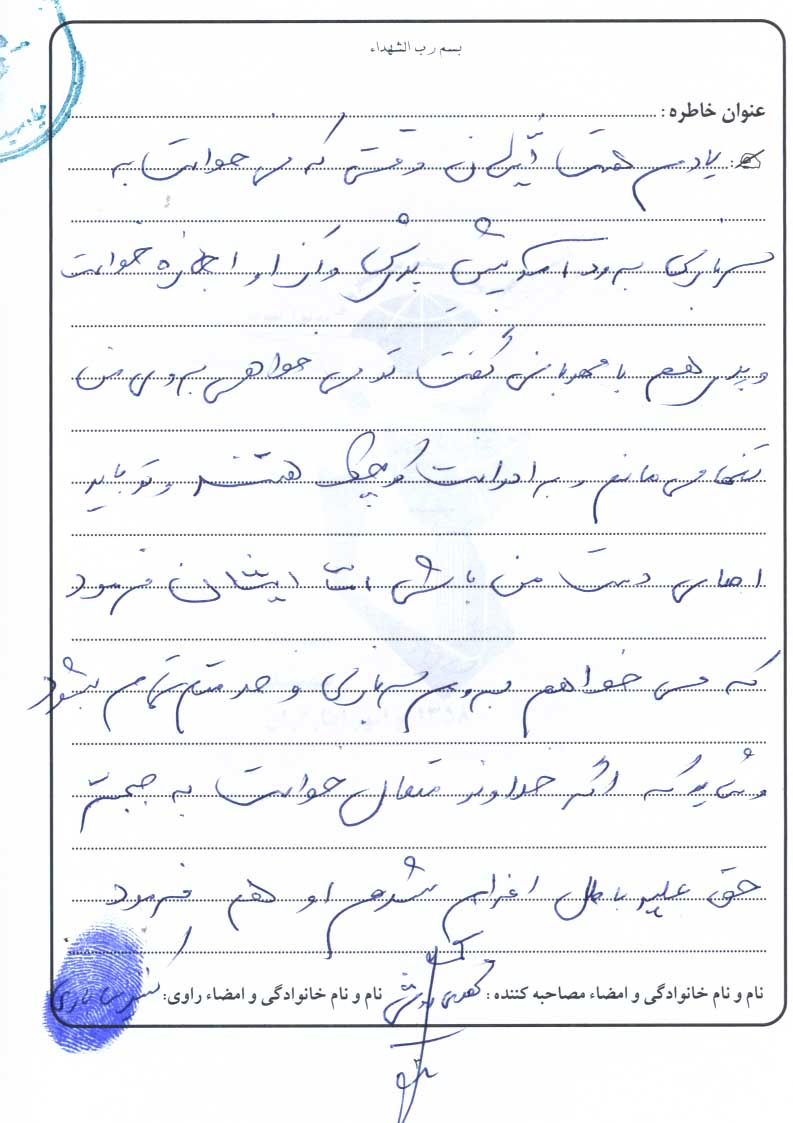 بسم رب الشهداء
عنوان خاطره :
یادم هست ایشان وقتی که می خواست به
سربازی برود آمد پیش پدرش و از او اجازه خواست
و پدرش هم با مهربانی گفت تو می خواهی بروی من
تنها می مانم و برادرانت کوچک هستند و تو باید
عصای دست من باشی اما ایشان فرمود
که می خواهم بروم سربازی و خدمتم تمام بشود
و شاید که اگر خداوند متعال خواست به جبهه
حق علیه باطل اعزام شدم او هم فرمود
نام و نام خانوادگی و امضاء مصاحبه کننده :
نام و نام خانوادگی و امضاء راوی: